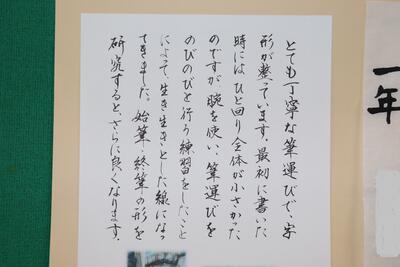 とても丁寧な筆運びで、字
形が整っています。最初に書いた
時には ひと回り全体が小さかった
のですが 腕を使い、筆運びを
のびのびを行う練習をしたこと
によって、生き生きとした線になっ
てきました。始筆・終筆の形を
研究すると、さらに良くなります。
一年